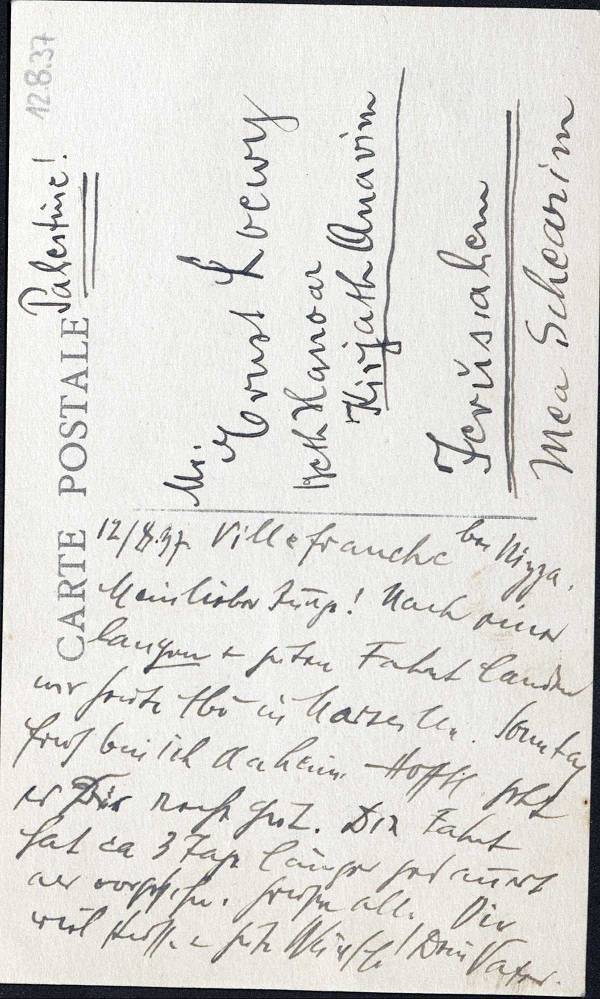 12.8.37
CARTE POSTALE
Palestine!
Mr.
Ernst Loewy
Beth Hanoar
Kirjath Anavim
Jerusalem
Mea Schearim
12/8.37. Villefranche bei Nizza.
Mein lieber Junge! Nach einer
langen + guten Fahrt landen
wir heute Abd in Marseille. Sonntag
früh bin ich daheim. Hofftl. geht
es Dir recht gut. Die Fahrt
hat ca 3 Tage länger gedauert
als vorgesehn. Grüße alle. Dir
viel herzl. + gute Wünsche! Dein Vater.